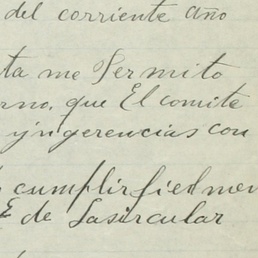 del corriente año
ta me Permito
rno, que El comite
yngerencias con
cumplir fielmen
E de Lasircular